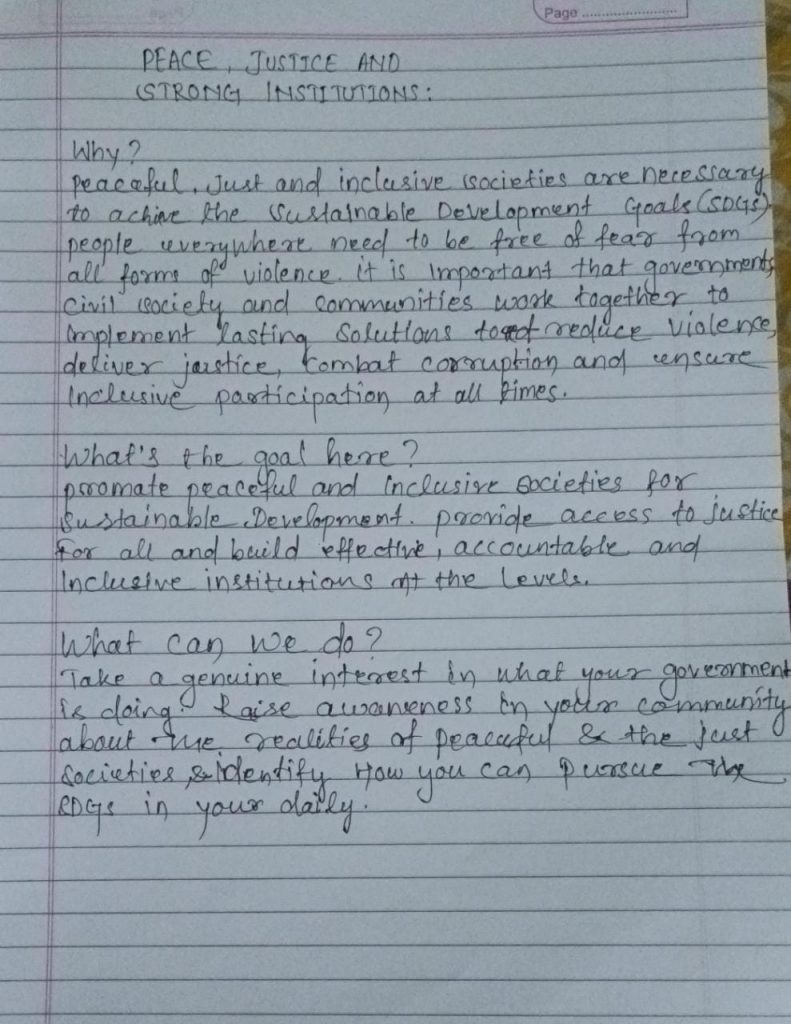 Page
PEACE, JUSTICE AND
STRONG INSTITUTIONS:
Why?
Peaceful, Just and inclusive societies are necessary
to achive the Sustainable Development Goals (SDGs)
people everywhere need to be free of fear from
all forms of violence. it is important that governments
civil society and communities work together to
implement lasting solutions to reduce violence,
deliver justice, combat corruption and ensure
inclusive participation at all times.
What's the goal here?
promate peaceful and inclusive societies for
Sustainable Development. provide access to justice
for all and build effective, accountable and
Inclusive institutions at the levels.
What can we do?
Take a genuine interest in what your government
is doing. Raise awareness in your community
about the realities of peaceful & the just
societies, & identify How you can pursue the
SDGs in your daily.